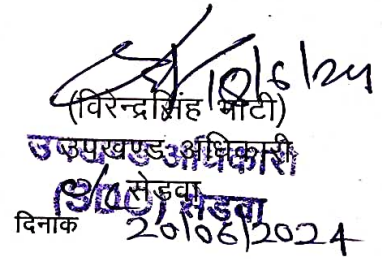 10/6/24
(विरेन्द्रसिंह भाटी)
उपखण्ड अधिकारी
उपखण्ड अधिकारी
सेड़वा
(SDO) सेडवा
दिनांक 20/06/2024